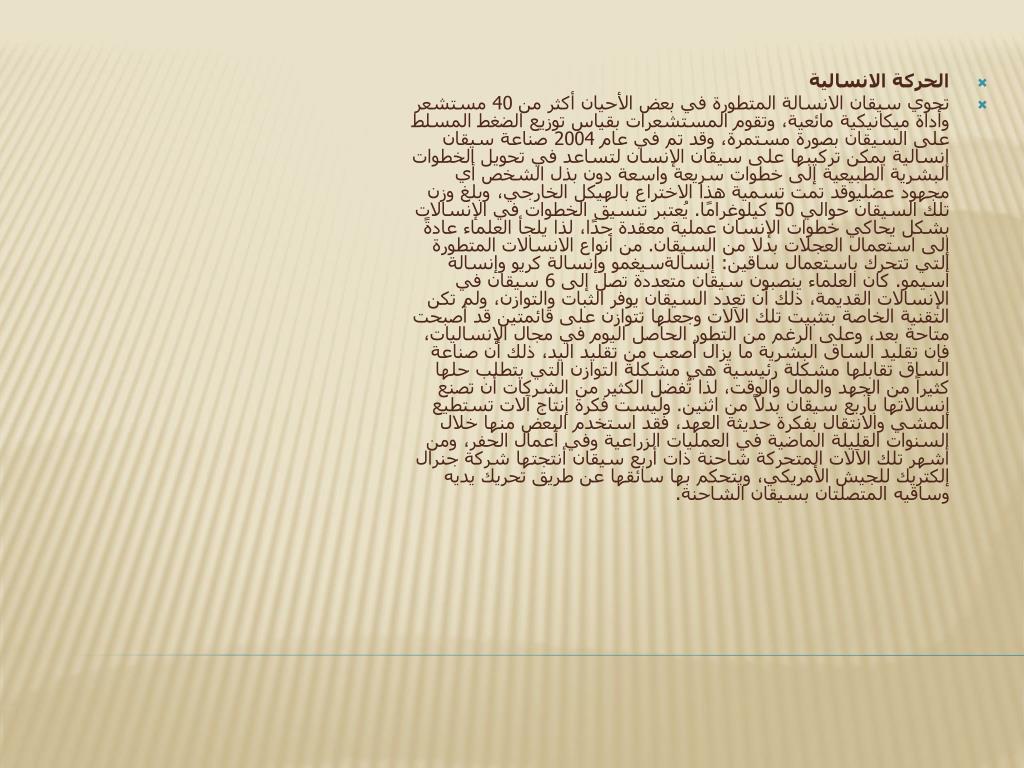 الحركة الانسالية
تحوي سيقان الانسالة المتطورة في بعض الأحيان أكثر من 40 مستشعر
وأداة ميكانيكية مائعية، وتقوم المستشعرات بقياس توزيع الضغط المسلط
على السيقان بصورة مستمرة، وقد تم في عام 2004 صناعة سيقان
إنسالية يمكن تركيبها على سيقان الإنسان لتساعد في تحويل الخطوات
البشرية الطبيعية إلى خطوات سريعة واسعة دون بذل الشخص أي
مجهود عضليوقد تمت تسمية هذا الاختراع بالهيكل الخارجي، وبلغ وزن
تلك السيقان حوالي 50 كيلوغرامًا. يُعتبر تنسيق الخطوات في الإنسالات
بشكل يحاكي خطوات الإنسان عملية معقدة جدًا، لذا يلجأ العلماء عادةً
إلى استعمال العجلات بدلا من السيقان. من أنواع الانسالات المتطورة
التي تتحرك باستعمال ساقين: إنسالةسيغمو وإنسالة كريو وإنسالة
أسيمو. كان العلماء ينصبون سيقان متعددة تصل إلى 6 سيقان في
الإنسالات القديمة، ذلك أن تعدد السيقان يوفر الثبات والتوازن، ولم تكن
التقنية الخاصة بتثبيت تلك الآلات وجعلها تتوازن على قائمتين قد أصبحت
متاحة بعد، وعلى الرغم من التطور الحاصل اليوم في مجال الإنساليات،
فإن تقليد الساق البشرية ما يزال أصعب من تقليد اليد، ذلك أن صناعة
الساق تقابلها مشكلة رئيسية هي مشكلة التوازن التي يتطلب حلها
كثيراً من الجهد والمال والوقت، لذا تُفضل الكثير من الشركات أن تصنع
إنسالاتها بأربع سيقان بدلاً من اثنين. وليست فكرة إنتاج آلات تستطيع
المشي والانتقال بفكرة حديثة العهد، فقد استخدم البعض منها خلال
السنوات القليلة الماضية في العمليات الزراعية وفي أعمال الحفر، ومن
أشهر تلك الآلات المتحركة شاحنة ذات أربع سيقان أنتجتها شركة جنرال
إلكتريك للجيش الأمريكي، ويتحكم بها سائقها عن طريق تحريك يديه
وساقيه المتصلتان بسيقان الشاحنة.